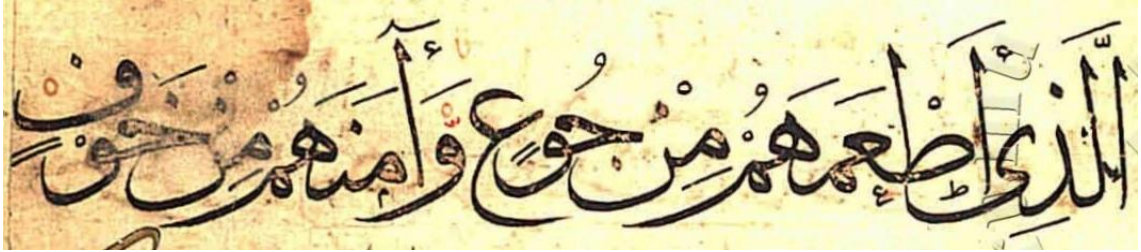 الَّذِي أَطْعَمَهُمْ مِنْ جُوعٍ وَآمَنَهُمْ مِنْ خَوْفٍ